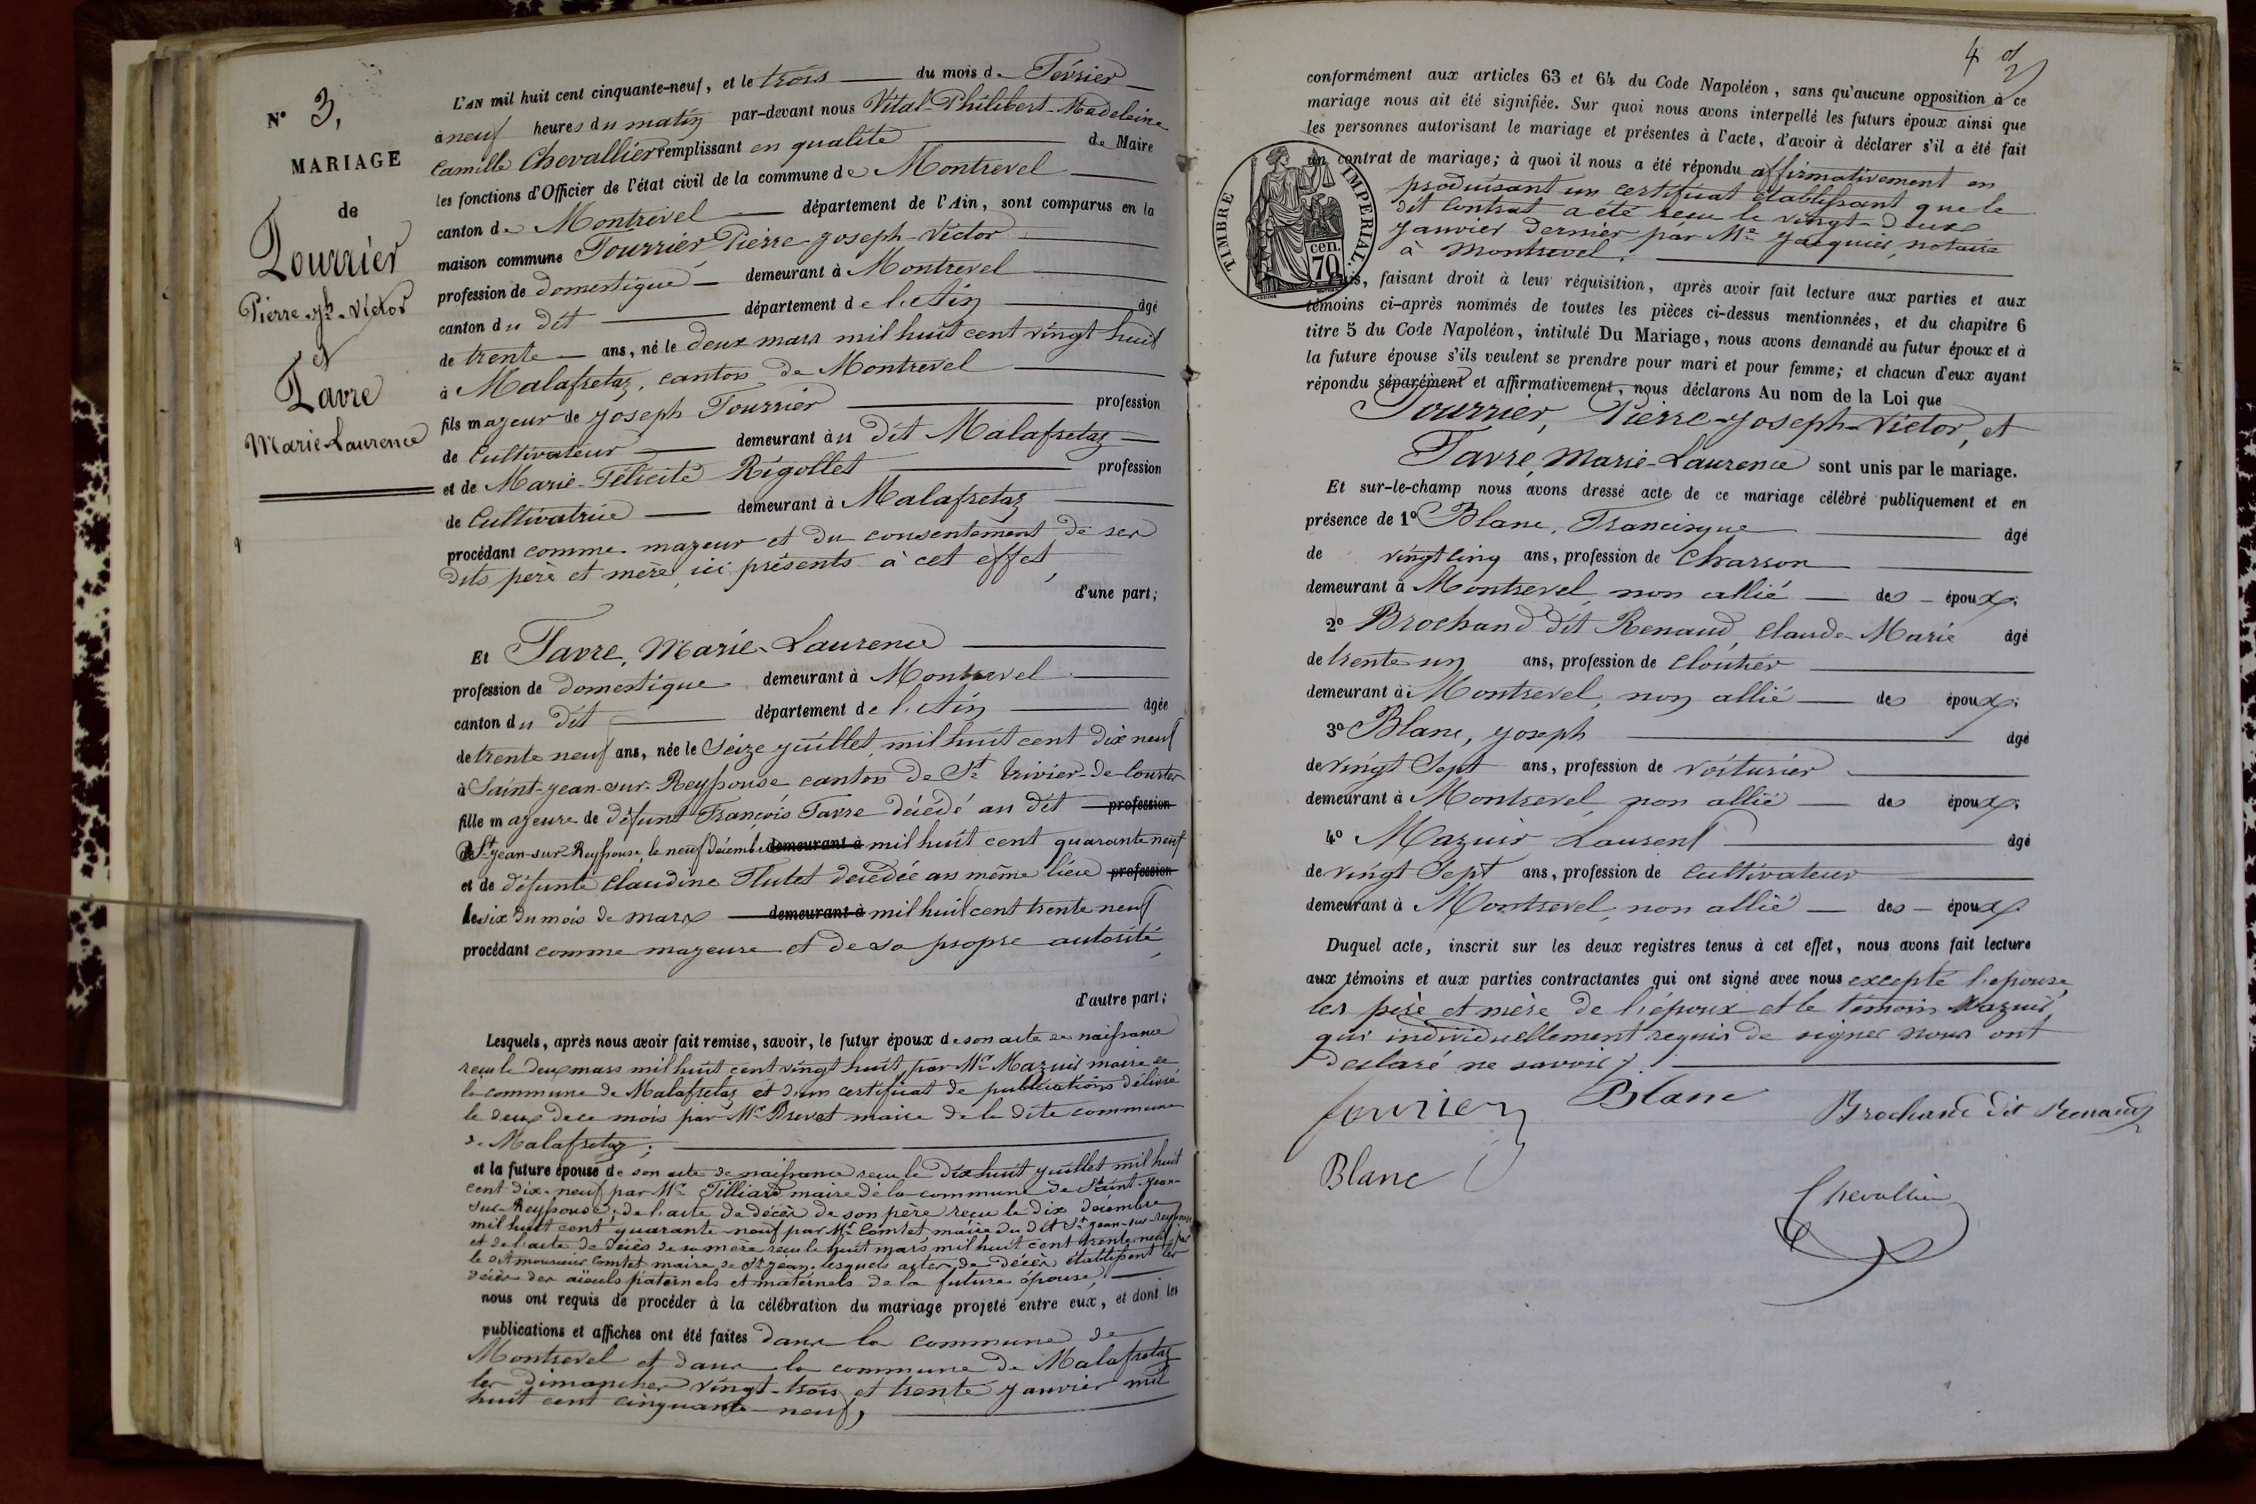 N° 3,
MARIAGE
de
Fourrier
Pierre-Jh-Victor
et
Favre
Marie-Laurence
L'AN mil huit cent cinquante-neuf, et le trois du mois de Février
à neuf heures du matin par-devant nous Vital-Philibert-Madeleine
Camille Chevallier remplissant en qualité de Maire
les fonctions d'Officier de l'état civil de la commune de Montrevel
canton de Montrevel département de l'Ain, sont comparus en la
maison commune Fourrier Pierre-Joseph-Victor
profession de domestique demeurant à Montrevel
canton du dit département de l'Ain âgé
de trente ans, né le deux mars mil huit cent vingt huit
à Malafretaz, canton de Montrevel
fils majeur de Joseph Fourrier profession
de Cultivateur demeurant au dit Malafretaz
et de Marie-Félicité Rigollet profession
de Cultivatrice demeurant à Malafretaz
procédant comme majeur et du consentement de ses
dits père et mère ici présents à cet effet,
d'une part;
Et Favre, Marie-Laurence
profession de domestique demeurant à Montrevel
canton du dit département de l'Ain âgée
de trente neuf ans, née le Seize juillet mil huit cent dix neuf
à Saint-Jean-sur-Reyssouse canton de St Trivier-de-Courtes
fille majeure de défunt François Favre décédé au dit profession
de St Jean-sur-Reyssouse, le neuf décembre demeurant à mil huit cent quarante neuf
et de défunte Claudine Flutet décédée au même lieu profession
le six du mois de mars demeurant à mil huit cent trente neuf
procédant comme majeure et de sa propre autorité,
d'autre part;
Lesquels, après nous avoir fait remise, savoir, le futur époux de son acte de naissance
reçu le deux mars mil huit cent vingt huit, par Mr Mazuir maire de
la commune de Malafretaz et d'un certificat de publications délivré
le deux de ce mois par Mr Brevet maire de la dite commune
de Malafretaz;
et la future épouse de son acte de naissance reçu le dix huit juillet mil huit
cent dix-neuf par Mr Tilliard maire de la commune de Saint-Jean-
sur-Reyssouse; de l'acte de décès de son père reçu le dix décembre
mil huit cent quarante neuf par Mr Comtet, maire du dit St Jean-sur-Reyssouse
et de l'acte de décès de sa mère reçu le huit mars mil huit cent trente neuf, par
le dit monsieur Comtet maire de St Jean, lesquels actes de décès établissent les
décès des aïeuls paternels et maternels de la future épouse,
nous ont requis de procéder à la célébration du mariage projeté entre eux, et dont les
publications et affiches ont été faites dans la commune de
Montrevel et dans la commune de Malafretaz
les dimanches vingt-trois et trente janvier mil
huit cent cinquante-neuf,
4
conformément aux articles 63 et 64 du Code Napoléon, sans qu'aucune opposition à ce
mariage nous ait été signifiée. Sur quoi nous avons interpellé les futurs époux ainsi que
les personnes autorisant le mariage et présentes à l'acte, d'avoir à déclarer s'il a été fait
un contrat de mariage; à quoi il nous a été répondu affirmativement en
produisant un certificat établissant que le
dit contrat a été reçu le vingt-deux
Janvier dernier par Me Jacquier, notaire
à Montrevel.
TIMBRE IMPERIAL.
cen.
70
Puis, faisant droit à leur réquisition, après avoir fait lecture aux parties et aux
témoins ci-après nommés de toutes les pièces ci-dessus mentionnées, et du chapitre 6
titre 5 du Code Napoléon, intitulé Du Mariage, nous avons demandé au futur époux et à
la future épouse s'ils veulent se prendre pour mari et pour femme; et chacun d'eux ayant
répondu séparément et affirmativement, nous déclarons Au nom de la Loi que
Fourrier, Pierre-Joseph-Victor, et
Favre, Marie-Laurence sont unis par le mariage.
Et sur-le-champ nous avons dressé acte de ce mariage célébré publiquement et en
présence de 1° Blanc, Francisque âgé
de vingt cinq ans, profession de Charron
demeurant à Montrevel, non allié des époux;
2° Brochand dit Renaud, Claude-Marie âgé
de trente un ans, profession de Cloutier
demeurant à Montrevel, non allié des époux;
3° Blanc, Joseph âgé
de vingt Sept ans, profession de voiturier
demeurant à Montrevel, non allié des époux;
4° Mazuir Laurent âgé
de vingt Sept ans, profession de Cultivateur
demeurant à Montrevel, non allié des époux.
Duquel acte, inscrit sur les deux registres tenus à cet effet, nous avons fait lecture
aux témoins et aux parties contractantes qui ont signé avec nous excepté l'épouse,
les père et mère de l'époux et le témoin Mazuir,
qui individuellement requis de signer nous ont
déclaré ne savoir.
fourrier Blanc Brochand dit Renaud
Blanc J
Chevallier